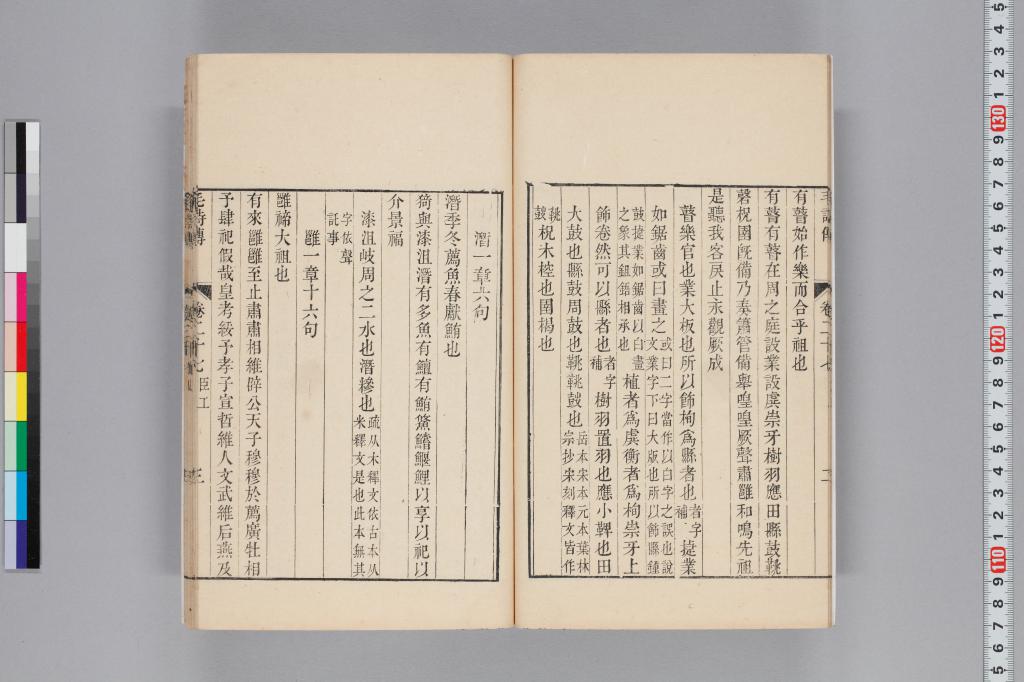 有瞽始作樂而合乎祖也
有瞽有瞽在周之庭設業設虡崇牙樹羽應田縣鼓鞉
磬柷圉旣備乃奏簫管備舉喤喤厥聲肅雝和鳴先祖
是聽我客戾止永觀厥成
瞽樂官也業大板也所以飾栒爲縣者也
者字
補
捷業
如鋸齒或曰畫之
或曰二字當作以白字之誤也說
文業字下曰大版也所以飾縣鐘
鼓捷業如鋸齒以白畫
之象其鉏鋙相承也
植者爲虡衡者爲栒崇牙上
飾卷然可以縣者也
者字
補
樹羽置羽也應小鞞也田
大鼓也縣鼓周鼓也鞉鞉鼓也
岳本宋本元本葉林
宗抄宋刻釋文皆作
鞉
鼓
柷木椌也圉楬也
潛一章六句
潛季冬薦魚春獻鮪也
猗與漆沮潛有多魚有鱣有鮪鰷鱨鰋鯉以享以祀以
介景福
漆沮岐周之二水也潛糝也
疏从木釋文依古本从
米釋文是也此本無其
字依聲
託事
雝一章十六句
雝禘大祖也
有來雝雝至止肅肅相維辟公天子穆穆於薦廣牡相
予肆祀假哉皇考綏予孝子宣哲維人文武維后燕及
毛詩傳
卷二十七
臣工
三